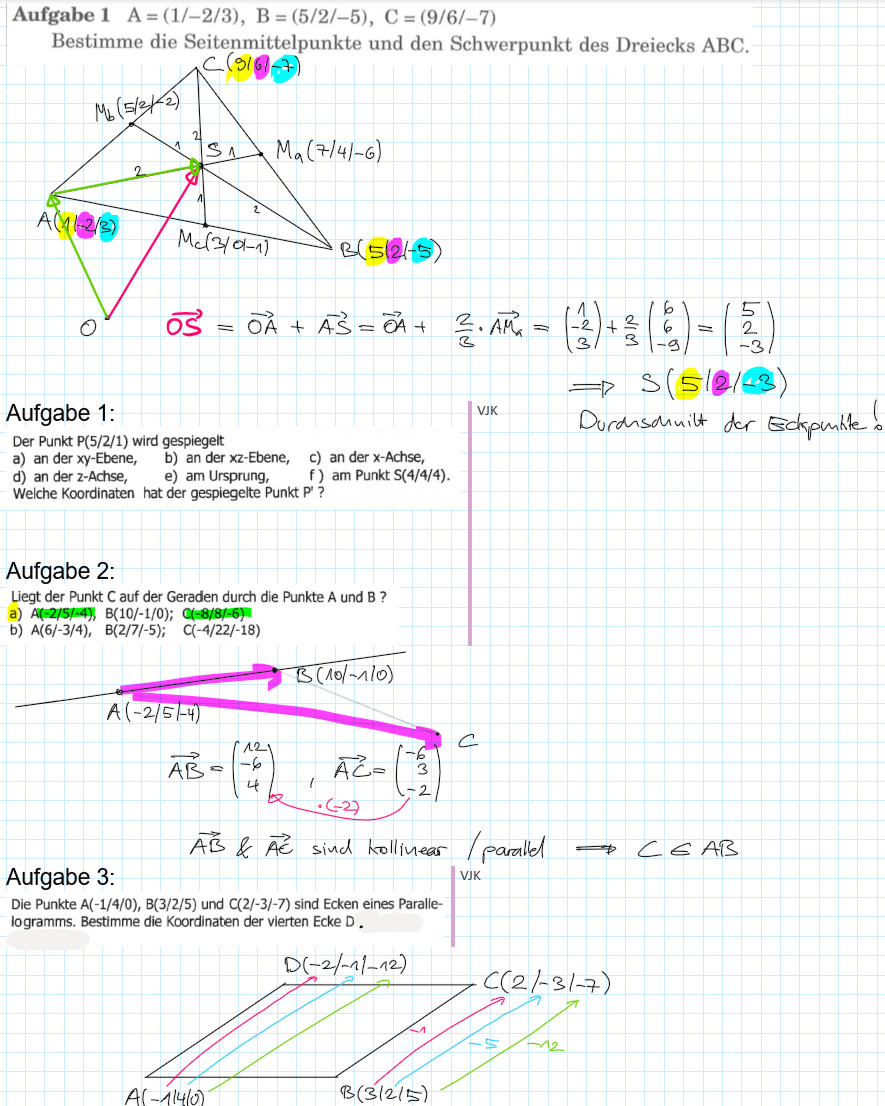 Aufgabe 1 A = (1/−2/3), B = (5/2/−5), C = (9/6/−7)
Bestimme die Seitenmittelpunkte und den Schwerpunkt des Dreiecks ABC.
C(9/6/-7)
Mb(5/2/-2)
2
1
S 1
Ma(7/4/-6)
2
1
2
A(1/-2/3)
Mc(3/0/-1)
B(5/2/-5)
O
OS = OA + AS = OA + 2/3 · AMa = (1 -2 3) + 2/3 (6 6 -9) = (5 2 -3)
⇒ S(5/2/-3)
Durchschnitt der Eckpunkte!
Aufgabe 1:
VJK
Der Punkt P(5/2/1) wird gespiegelt
a) an der xy-Ebene, b) an der xz-Ebene, c) an der x-Achse,
d) an der z-Achse, e) am Ursprung, f) am Punkt S(4/4/4).
Welche Koordinaten hat der gespiegelte Punkt P' ?
Aufgabe 2:
Liegt der Punkt C auf der Geraden durch die Punkte A und B ?
a) A(-2/5/-4), B(10/-1/0); C(-8/8/-6)
b) A(6/-3/4), B(2/7/-5); C(-4/22/-18)
B(10/-1/0)
A(-2/5/-4)
C
AB = (12 -6 4), AC = (-6 3 -2)
·(-2)
AB & AC sind kollinear / parallel ⇒ C ∈ AB
Aufgabe 3:
VJK
Die Punkte A(-1/4/0), B(3/2/5) und C(2/-3/-7) sind Ecken eines Paralle-
logramms. Bestimme die Koordinaten der vierten Ecke D.
D(-2/-1/-12)
C(2/-3/-7)
-1
-5
-12
A(-1/4/0)
B(3/2/5)